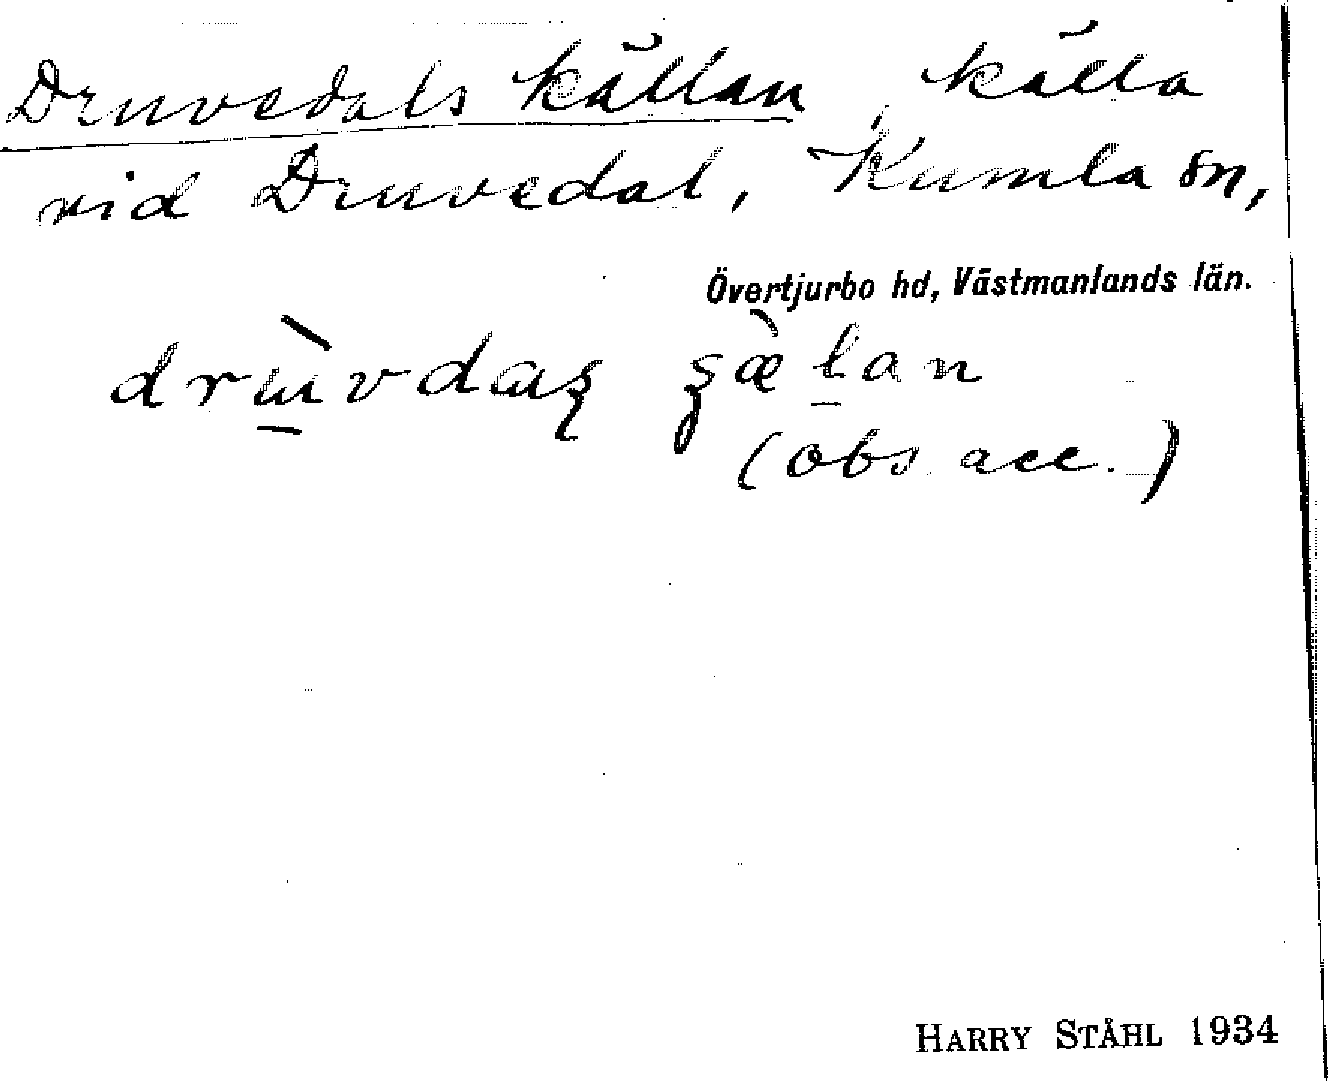 Druvedals källan, källa
vid Druvedal, Kumla sn,
Övertjurbo hd, Västmanlands län.
(obs acc.)
HARRY STÅHL 1934